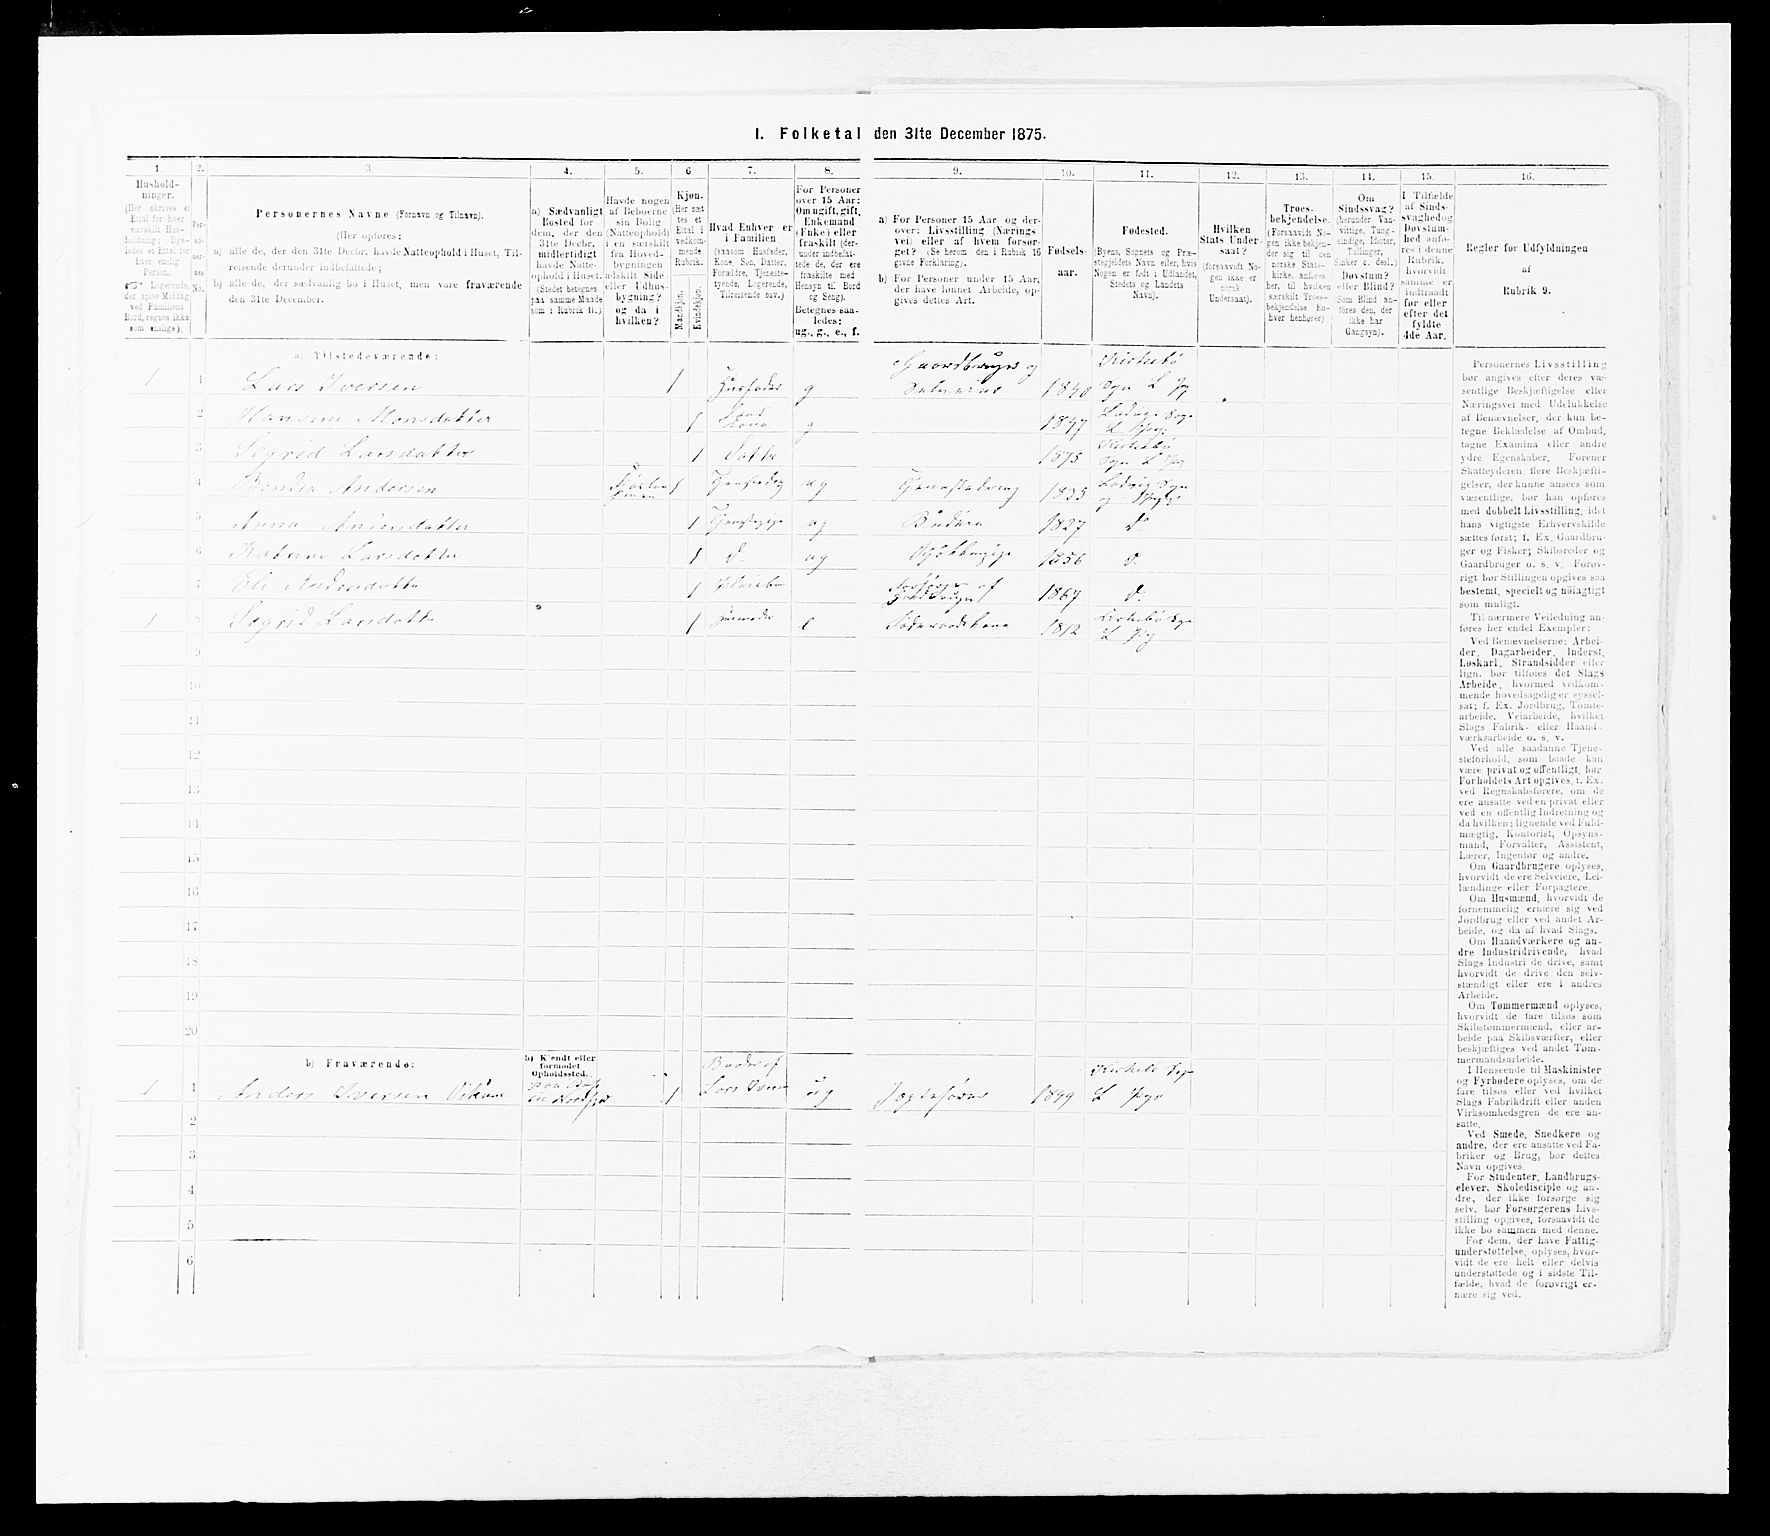 I. Folketal den 31te December 1875.
1. 2. 3. 4. 5. 6 7. 8. 9. 10. 11. 12. 13. 14. 15. 16.
Hushold-
ninger.
(Her skrives et
Ettal for hver
særskilt Hus-
holdning; lige-
ledes et Ettal for
hver enslig
Person.
Logerende,
der spise Middag
ved Familiens
Bord, regnes ikke
som enslige).
Per-
so-
ner-
nes
No.
Personernes Navne (Fornavn og Tilnavn).
(Her opføres:
a) alle de, der den 31te Decbr. havde Natteophold i Huset, Til-
reisende derunder indbefattede;
b) alle de, der sædvanlig bo i Huset, men vare fraværende
den 31te December.
a) Sædvanligt
Bosted for
dem, der den
31te Decbr.
midlertidigt
havde Natte-
ophold i Huset.
(Stedet betegnes
paa samme Maade
som i Rubrik 11.)
Havde nogen
af Beboerne
sin Bolig
(Natteophold)
i en særskilt
fra Hoved-
bygningen
adskilt Side-
eller Udhus-
bygning?
og da i
hvilken?
Kjøn.
(Her sæt
tes et
Ettal i
vedkom-
mende
Rubrik.
Mandkjøn.
Kvindekjøn.
Hvad Enhver er
i Familien
(saasom Husfader,
Kone, Søn, Datter,
Forældre, Tjeneste-
tyende, Logerende,
Tilreisende osv.)
For Personer
over 15 Aar:
Om ugift, gift,
Enkemand
(Enke) eller
fraskilt (der-
under indbefat-
tede de, der ere
fraskilte med
Hensyn til Bord
og Seng).
Betegnes saa-
ledes:
ug., g., e., f.
a) For Personer 15 Aar og der-
over: Livsstilling (Nærings
vei) eller af hvem forsør-
get? (Se herom den i Rubrik 16
givne Forklaring).
b) For Personer under 15 Aar,
der have lønnet Arbeide, op-
gives dettes Art.
Fødsels-
aar.
Fødested.
(Byens, Sognets og Præ-
stegjeldets Navn eller, hvis
Nogen er født i Udlandet,
Stedets og Landets
Navn).
Hvilken
Stats Under-
saat?
(forsaavidt No-
gen ikke er
norsk
Undersaat).
Troes-
bekjendelse.
(Forsaavidt No-
gen ikke bekjen-
der sig til den
norske Stats-
kirke, anføres
her, til hvilken
særskilt Troes-
bekjendelse En-
hver henhører)
Om
Sindssvag?
(herunder Van-
vittige, Tung-
sindige, Idioter,
Tullinger,
Sinker o. desl.)
Døvstum?
eller Blind?
(Som Blind an-
føres den, der
ikke har
Gangsyn).
I Tilfælde
af Sinds-
svaghed og
Døvstum-
hed anfø-
res i denne
Rubrik,
hvorvidt
samme er
indtraadt
før eller
efter det
fyldte
4de Aar.
Regler for Udfyldningen
af
Rubrik 9.
a) Tilstedeværende:
1 1 Lars Iversen 1 Husfader g Gaardbruger og Selveier 1840 Kirkebø Sogn L Pg
2 Hansine Monsdatter 1 Kone g 1847
3 Sigrid Larsdatter 1 Datter 1875 Kirkebø Sogn L Pg
4 Bendik Andersen 1 ug 1835
5 Anna Andersdatter 1 ug 1827 Do
6 Katrine Larsdatter 1 D. ug 1856 D.
7 Eli Andersdatter 1 Pleiebarn 1867 D.
1 8 Sigrid Larsdatter 1 Husmoder e Føderaadskone 1812 Kirkebø Sogn L Pg
9
10
11
12
13
14
15
16
17
18
19
20
b) Fraværende:
b) Kjendt eller
formodet
Opholdssted.
1 1 Anders Iversen 1 Broder af Lars Iversen ug 1849 L Pg
2
3
4
5
6
Personernes Livsstilling
bør angives efter deres væ-
sentlige Beskjæftigelse eller
Næringsvei med Udelukkelse
af Benævnelser, der kun be-
tegne Beklædelse af Ombud,
tagne Examina eller andre
ydre Egenskaber. Forener
Skatteyderen flere Beskjæfti-
gelser, der kunne ansees som
væsentlige, bør han opføres
med dobbelt Livsstilling, idet
hans vigtigste Erhvervskilde
sættes først; f. Ex. Gaardbru-
ger og Fisker; Skibsreder og
Gaardbruger o. s. v. Forøv-
rigt bør Stillingen opgives saa
bestemt, specielt og nøiagtigt
som muligt.
Til nærmere Veiledning an-
føres her endel Exempler:
Ved Benævnelserne: Arbei-
der, Dagarbeider, Inderst,
Løskarl, Strandsidder eller
lign. bør tilføies det Slags
Arbeide, hvormed vedkom-
mende hovedsagelig er syssel-
sat; f. Ex. Jordbrug, Tomte-
arbeide, Veiarbeide, hvilket
Slags Fabrik- eller Haand-
værksarbeide o. s. v.
Ved alle saadanne Tjene-
steforhold, som baade kan
være privat og offentligt, bør
Forholdets Art opgives, f. Ex.
ved Regnskabsførere, om de
ere ansatte ved en privat eller
ved en offentlig Indretning og
da hvilken; lignende ved Fuld-
mægtig, Kontorist, Opsyns-
mand, Forvalter, Assistent,
Lærer, Ingeniør og andre.
Om Gaardbrugere oplyses,
hvorvidt de ere Selveiere, Lei-
lændinge eller Forpagtere.
Om Husmænd, hvorvidt de
fornemmelig ernære sig ved
Jordbrug eller ved andet Ar-
beide, og da af hvad Slags.
Om Haandværkere og an-
dre Industridrivende, hvad
Slags Industri de drive, samt
hvorvidt de drive den selv-
stændigt eller ere i andres
Arbeide.
Om Tømmermænd oplyses,
hvorvidt de fare tilsøs som
Skibstømmermænd, eller ar-
beide paa Skibsværfter, eller
beskjæftiges ved andet Tøm-
mermandsarbeide.
I Henseende til Maskinister
og Fyrbødere oplyses, om de
fare tilsøs eller ved hvilket
Slags Fabrikdrift eller anden
Virksomhedsgren de ere an-
satte.
Ved Smede, Snedkere og
andre, der ere ansatte ved Fa-
briker og Brug, bør dettes
Navn opgives.
For Studenter, Landbrugs-
elever, Skoledisciple og an-
dre, der ikke forsørge sig
selv, bør Forsørgerens Livs-
stilling opgives, forsaavidt de
ikke bo sammen med denne.
For dem, der have Fattig-
understøttelse, oplyses, hvor-
vidt de ere helt eller delvis
understøttede og i sidste Til-
fælde, hvad de forøvrigt er-
nære sig ved.